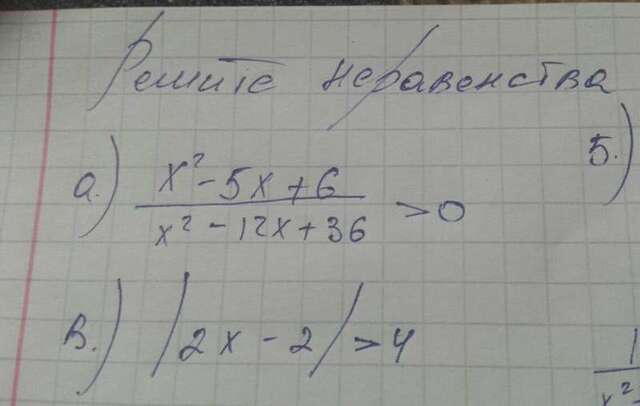 Решите неравенства
а.) x² - 5x + 6 / x² - 12x + 36 > 0
5.)
в.) |2x - 2| > 4
1 / x² -